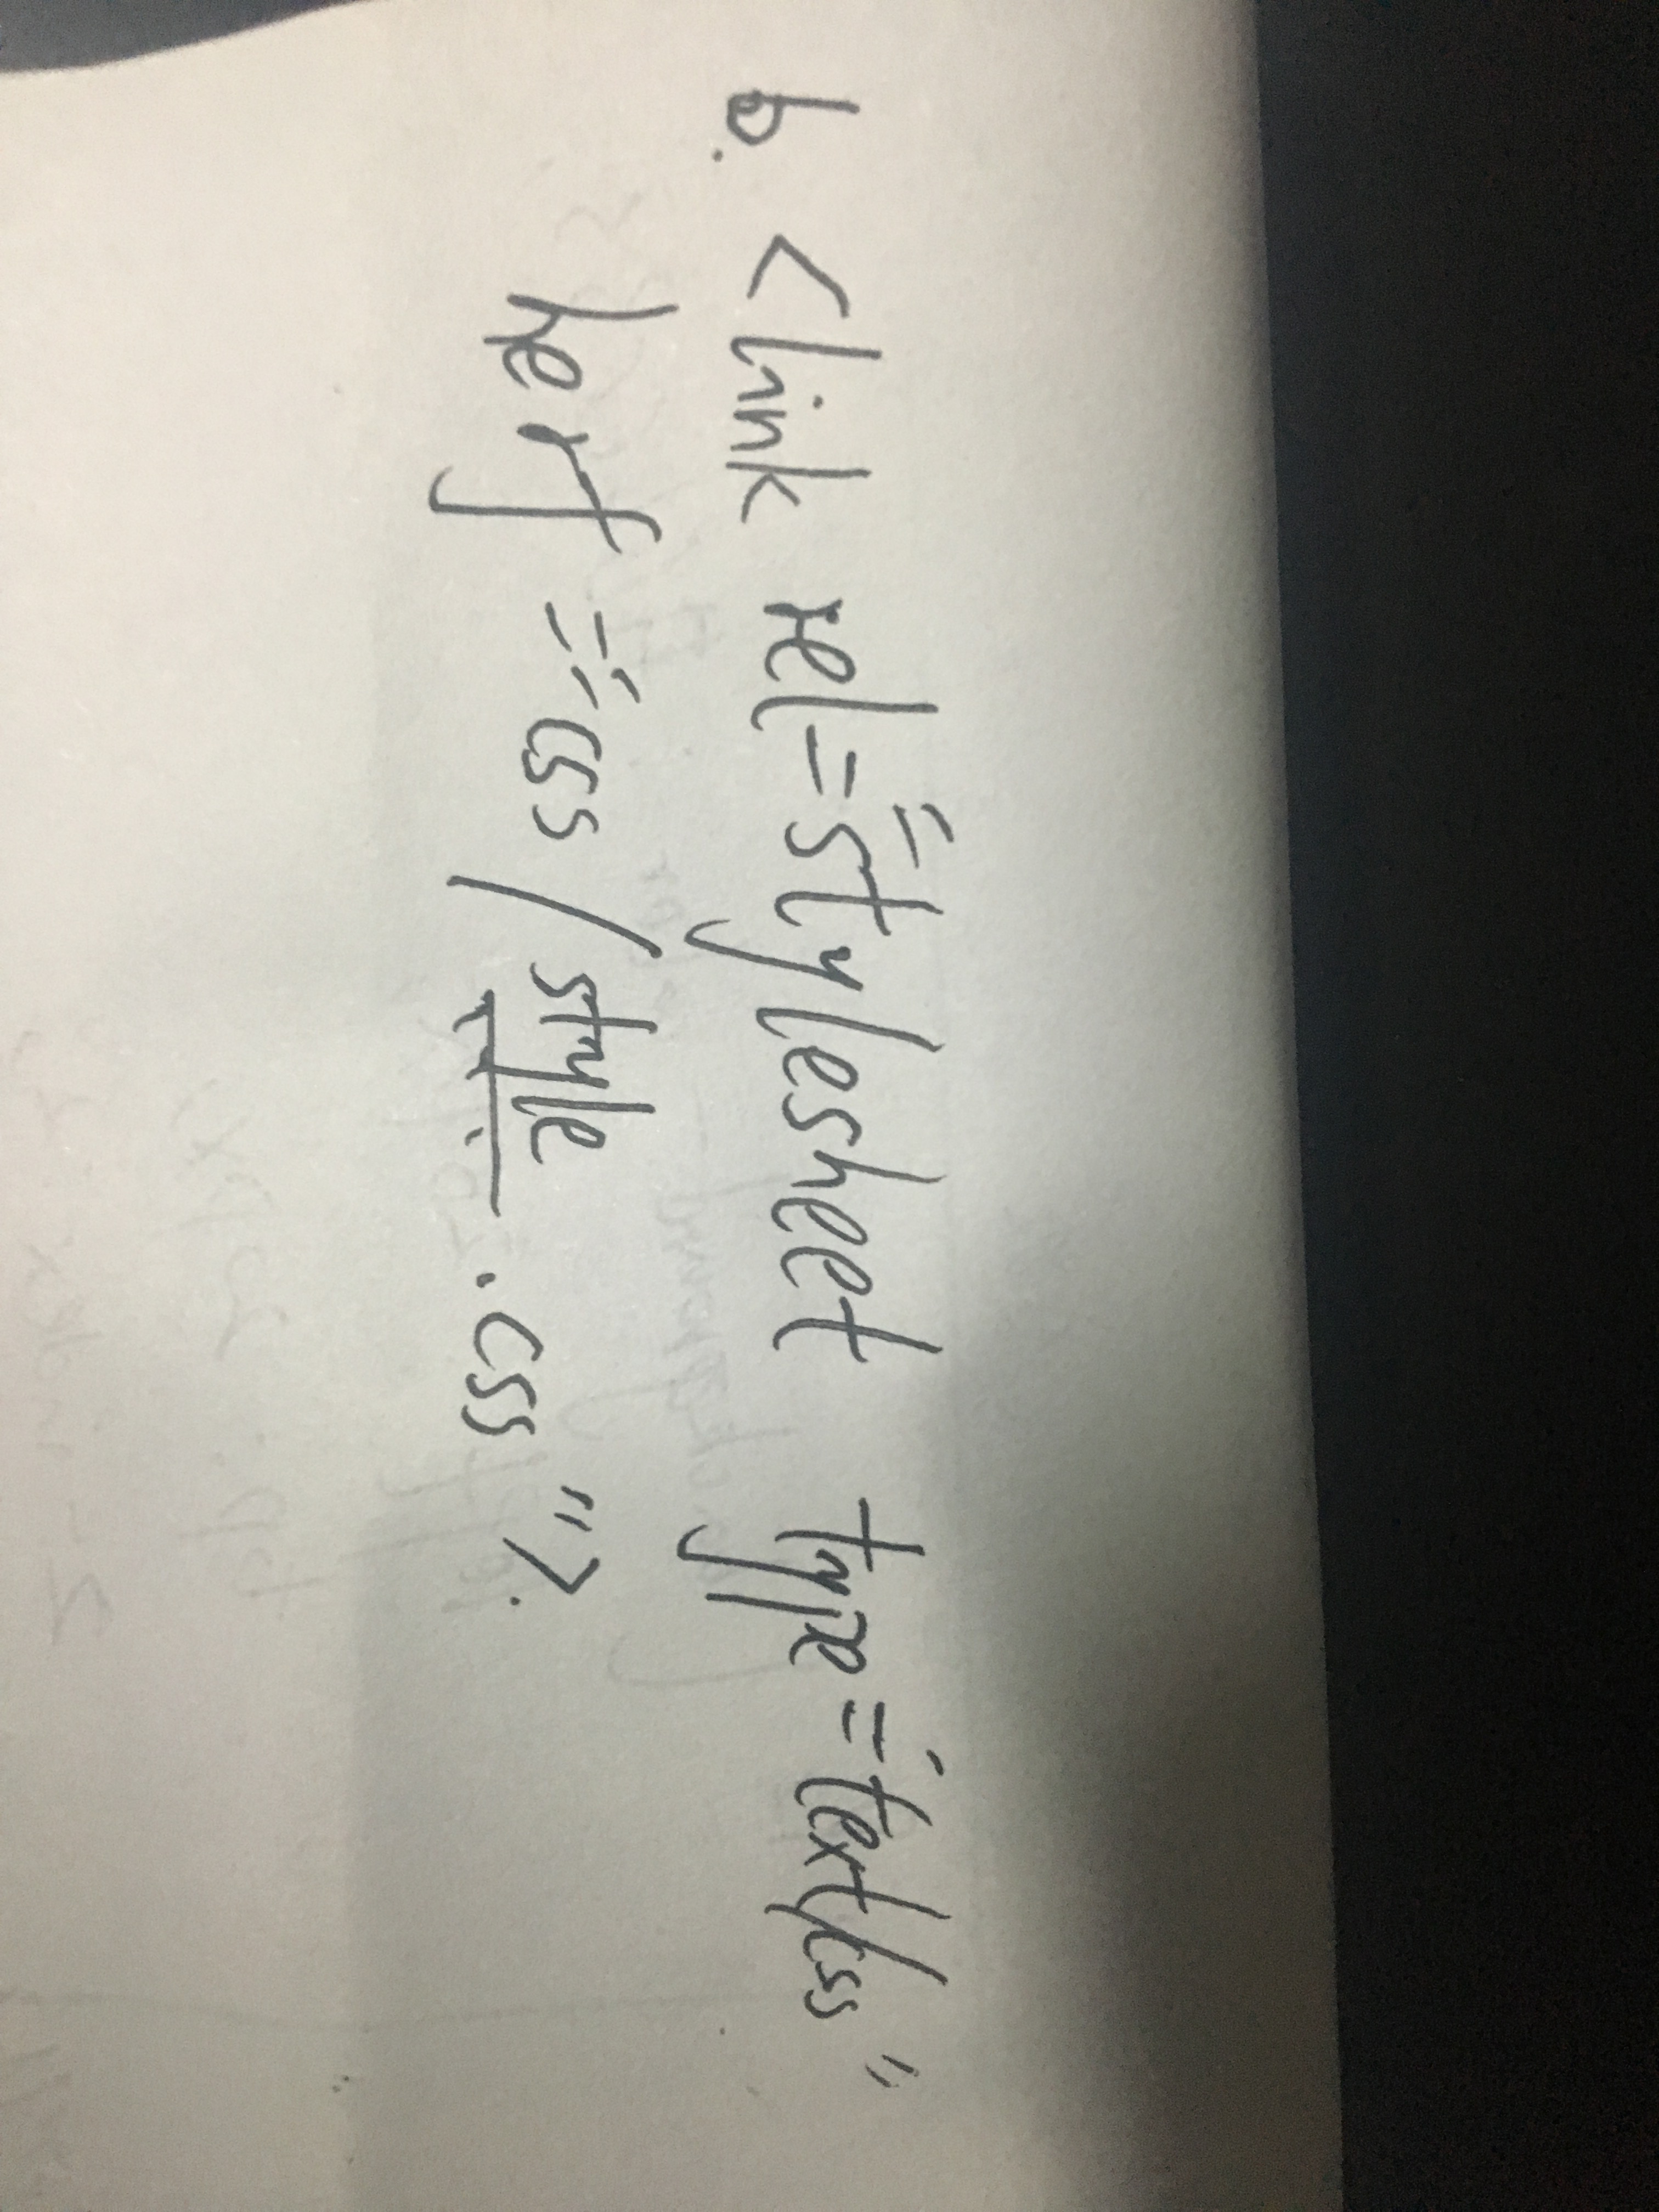 b. <link rel="stylesheet type="text/css"
herf="css/style.css">.